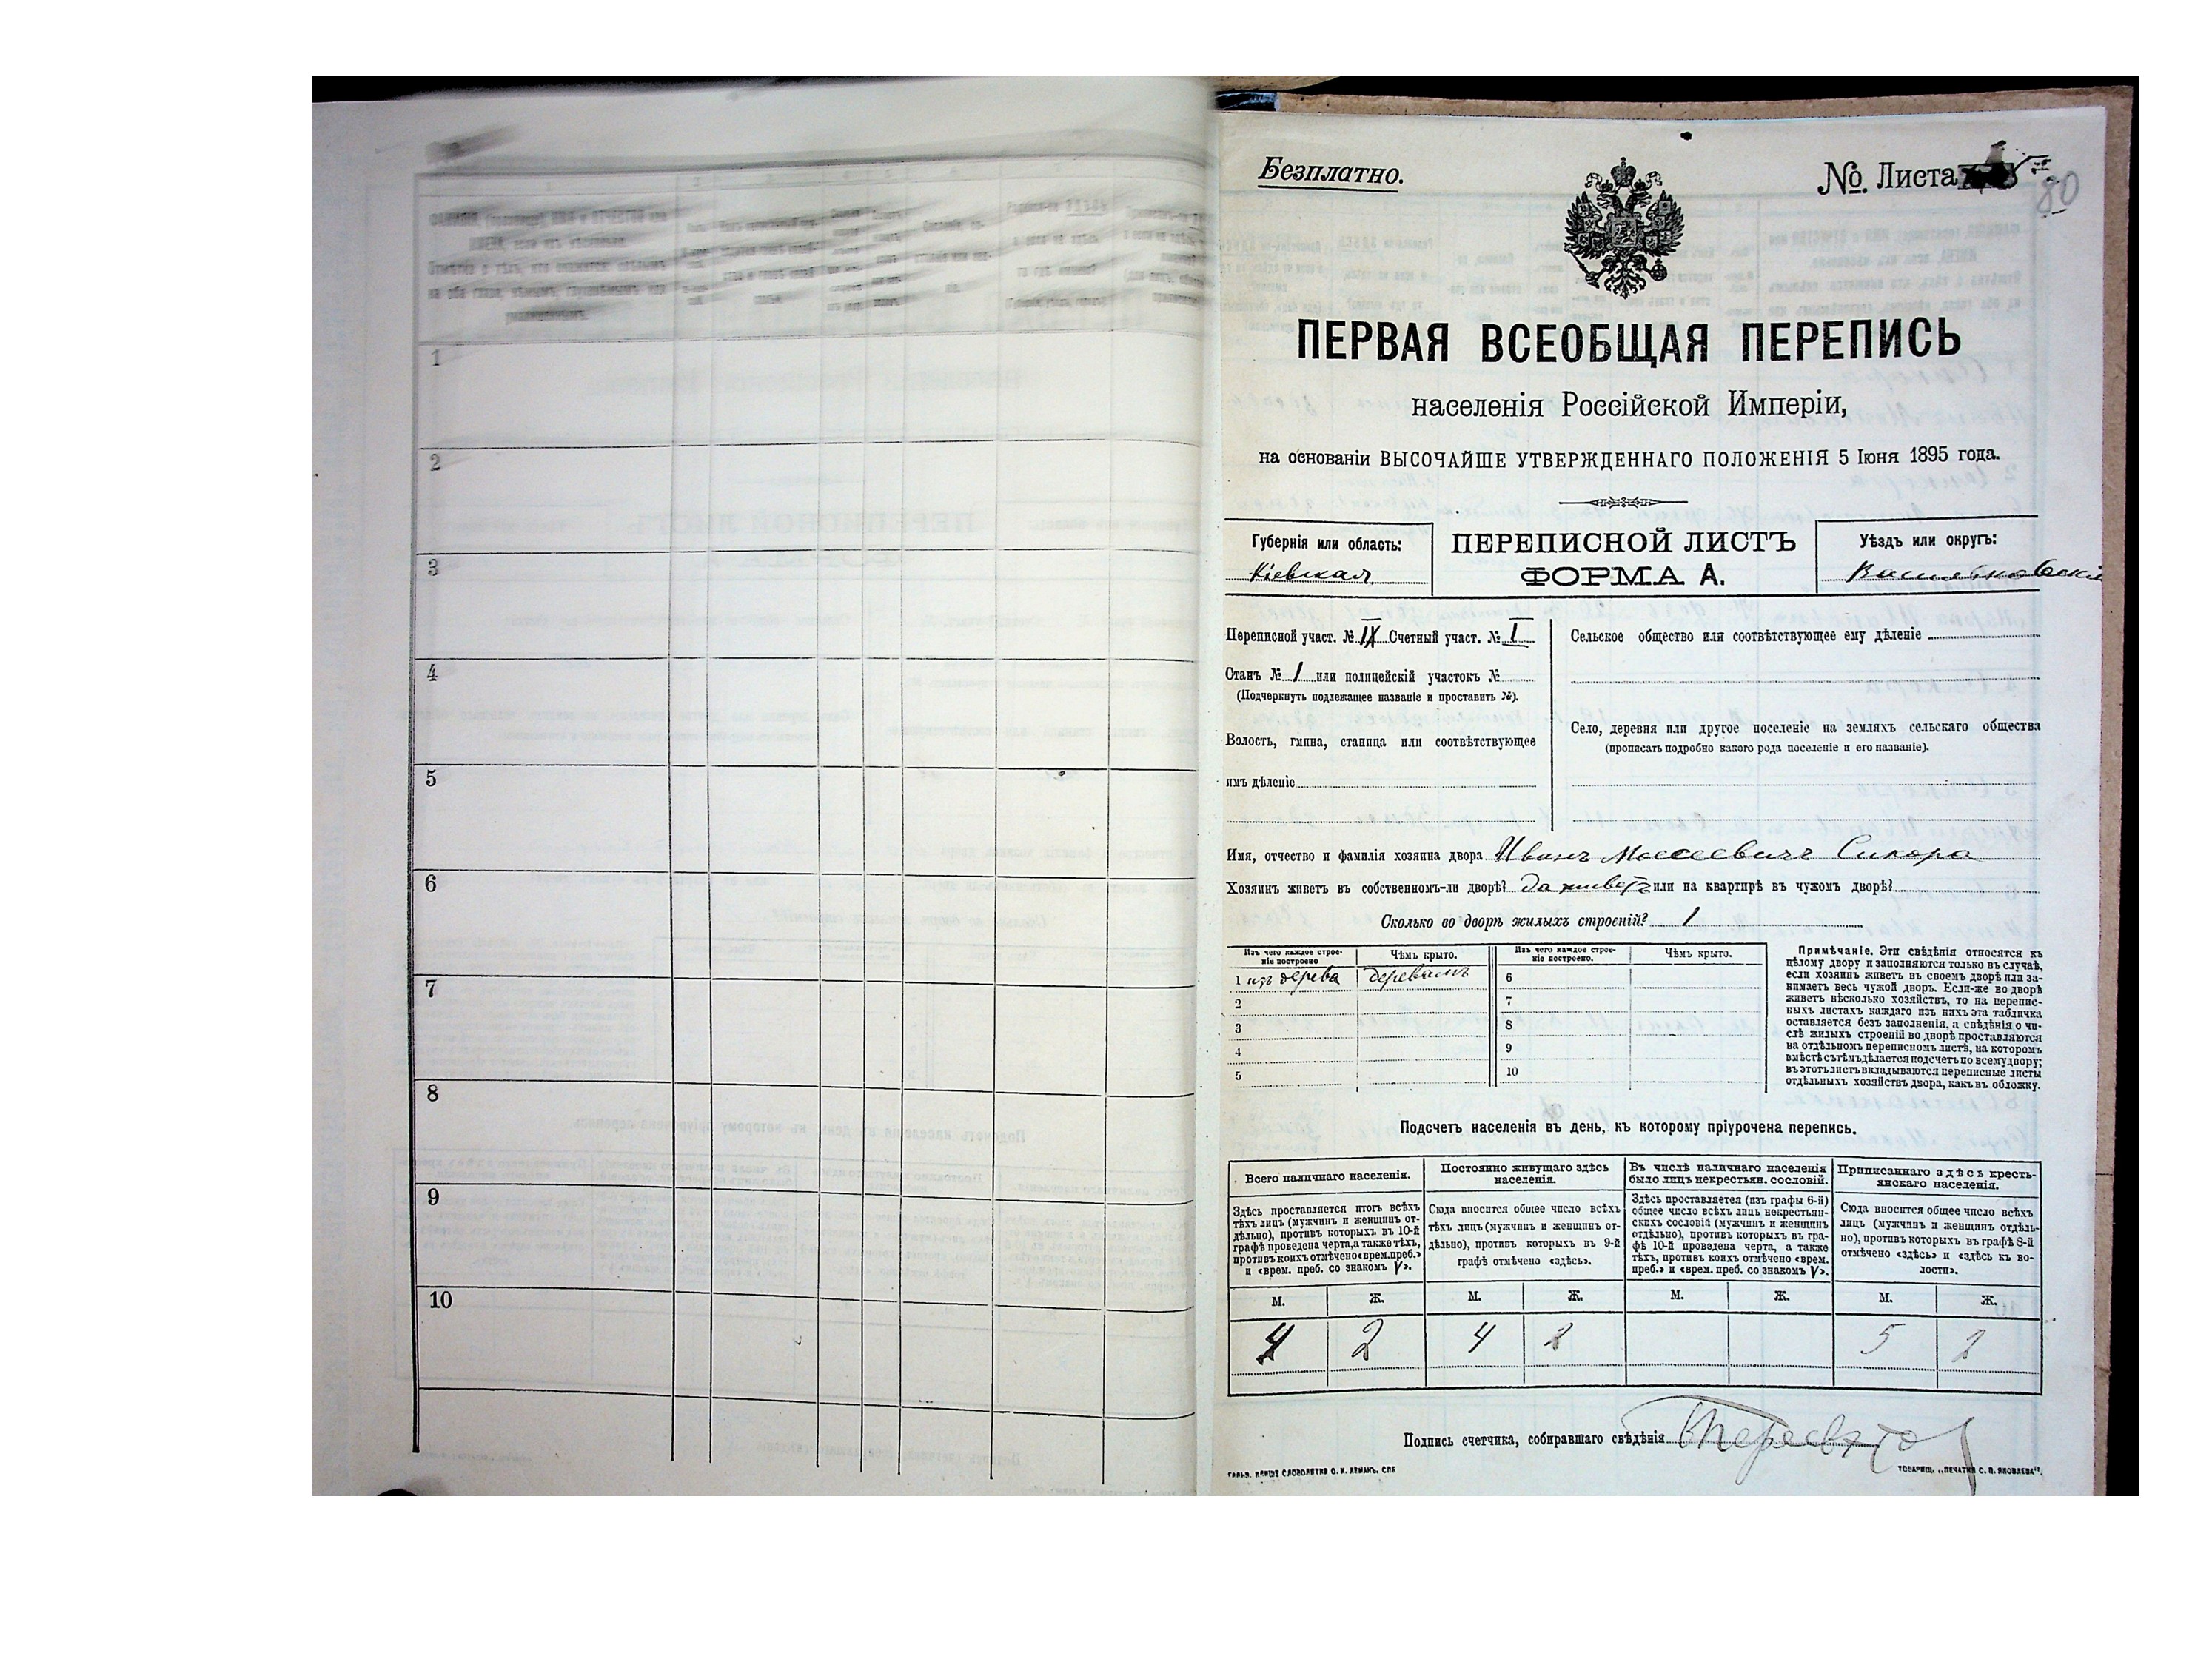 1
2
3
4
5
6
7
8
9
10
Безплатно.
№. Листа
80
ПЕРВАЯ ВСЕОБЩАЯ ПЕРЕПИСЬ
населенія Россійской Имперіи,
на основаніи ВЫСОЧАЙШЕ УТВЕРЖДЕННАГО ПОЛОЖЕНІЯ 5 Іюня 1895 года.
Губернія или область:
Кіевская
ПЕРЕПИСНОЙ ЛИСТЪ
ФОРМА А.
Уѣздъ или округъ:
Васильковскій
Переписной участ. № IX Счетный участ. № I
Станъ № 1 или полицейскій участокъ №
(Подчеркнуть подлежащее названіе и проставить №).
Волость, гмина, станица или соотвѣтствующее
имъ дѣленіе
Сельское общество или соотвѣтствующее ему дѣленіе
Село, деревня или другое поселеніе на земляхъ сельскаго общества
(прописать подробно какого рода поселеніе и его названіе).
Имя, отчество и фамилія хозяина двора Иванъ Моисеевичъ Сикора
Хозяинъ живетъ въ собственномъ-ли дворѣ? да живетъ или на квартирѣ въ чужомъ дворѣ?
Сколько во дворѣ жилыхъ строеній? 1
Изъ чего каждое строе-
ніе построено
Чѣмъ крыто.
Изъ чего каждое строе-
ніе построено.
Чѣмъ крыто.
1 изъ дерева деревомъ 6
2 7
3 8
4 9
5 10
Примѣчаніе. Эти свѣдѣнія относятся къ
цѣлому двору и заполняются только въ случаѣ,
если хозяинъ живетъ въ своемъ дворѣ или за-
нимаетъ весь чужой дворъ. Если-же во дворѣ
живетъ нѣсколько хозяйствъ, то на перепис-
ныхъ листахъ каждаго изъ нихъ эта табличка
оставляется безъ заполненія, а свѣдѣнія о чи-
слѣ жилыхъ строеній во дворѣ проставляются
на отдѣльномъ переписномъ листѣ, на которомъ
вмѣстѣ съ тѣмъ дѣлается подсчетъ по всему двору;
въ этотъ листъ вкладываются переписные листы
отдѣльныхъ хозяйствъ двора, какъ въ обложку.
Подсчетъ населенія въ день, къ которому пріурочена перепись.
Всего наличнаго населенія.
Здѣсь проставляется итогъ всѣхъ
тѣхъ лицъ (мужчинъ и женщинъ от-
дѣльно), противъ которыхъ въ 10-й
графѣ проведена черта, а также тѣхъ,
противъ коихъ отмѣчено «врем. преб.»
и «врем. преб. со знакомъ V».
Постоянно живущаго здѣсь
населенія.
Сюда вносится общее число всѣхъ
тѣхъ лицъ (мужчинъ и женщинъ от-
дѣльно), противъ которыхъ въ 9-й
графѣ отмѣчено «здѣсь».
Въ числѣ наличнаго населенія
было лицъ некрестьян. сословій.
Здѣсь проставляется (изъ графы 6-й)
общее число всѣхъ лицъ некрестьян-
скихъ сословій (мужчинъ и женщинъ
отдѣльно), противъ которыхъ въ гра-
фѣ 10-й проведена черта, а также
тѣхъ, противъ коихъ отмѣчено «врем.
преб.» и «врем. преб. со знакомъ V».
Приписаннаго здѣсь кресть-
янскаго населенія.
Сюда вносится общее число всѣхъ
лицъ (мужчинъ и женщинъ отдѣль-
но), противъ которыхъ въ графѣ 8-й
отмѣчено «здѣсь» и «здѣсь къ во-
лости».
М. Ж. М. Ж. М. Ж. М. Ж.
4 2 4 2 5 2
Подпись счетчика, собиравшаго свѣдѣнія
ТОВАРИЩ. „ПЕЧАТНЯ С. П. ЯКОВЛЕВА“.